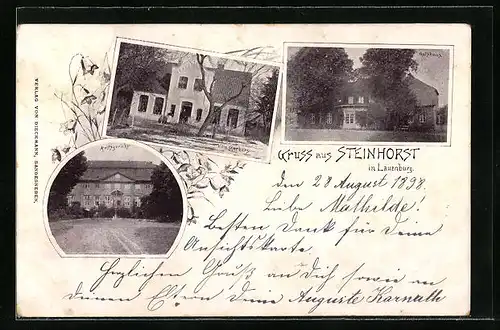 VERLAG VON DIECKMANN, SANDESNEBEN.
Amtsgericht
Gruss aus STEINHORST
in Lauenburg.
den 28 August 1898.
Liebe Mathilde!
Besten Dank für Deine
Ansichtskarte.
Herzlichen Gruß an Dich sowie an
deinen Eltern Deine Auguste Karnatte